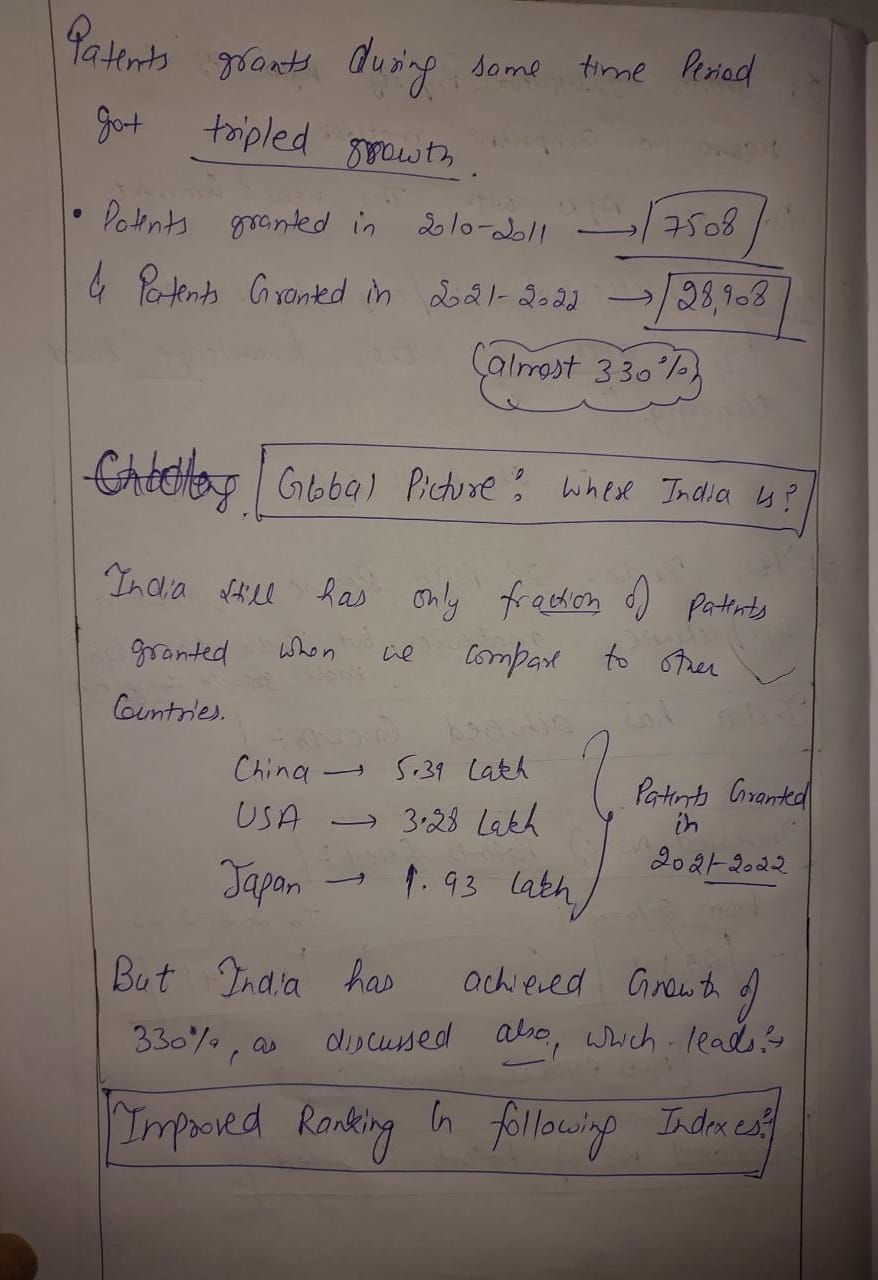 Patents grants during same time Period
got tripled growth.
• Patents granted in 2010-2011 → 7508
& Patents Granted in 2021-2022 → 28,908
(almost 330%)
Global Picture: Where India is?
India still has only fraction of patents
granted when we compare to other
Countries.
China → 5.39 Lakh
USA → 3.28 Lakh
Japan → 1.93 Lakh
Patents Granted
in
2021-2022
But India has achieved Growth of
330%, as discussed also, which leads:→
Improved Ranking In following Indexes: